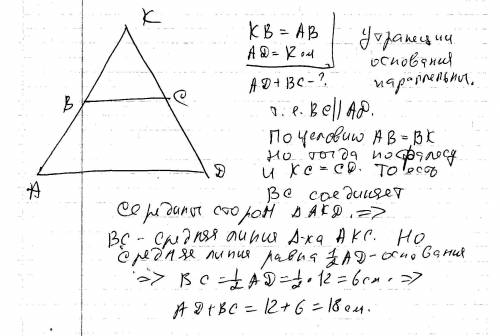 K
KB = AB
AD = 12 см
AD + BC - ?
У трапеции
основания
параллельны.
B
C
A
D
т.е. BC || AD.
По условию AB = BK
Но тогда по Фалесу
и KC = CD. То есть
BC соединяет
середины сторон Δ AKD. =>
BC - средняя линия Δ-ка AKC. Но
средняя линия равна 1/2 AD - основания
=> BC = 1/2 AD = 1/2 · 12 = 6 см. =>
AD + BC = 12 + 6 = 18 см.